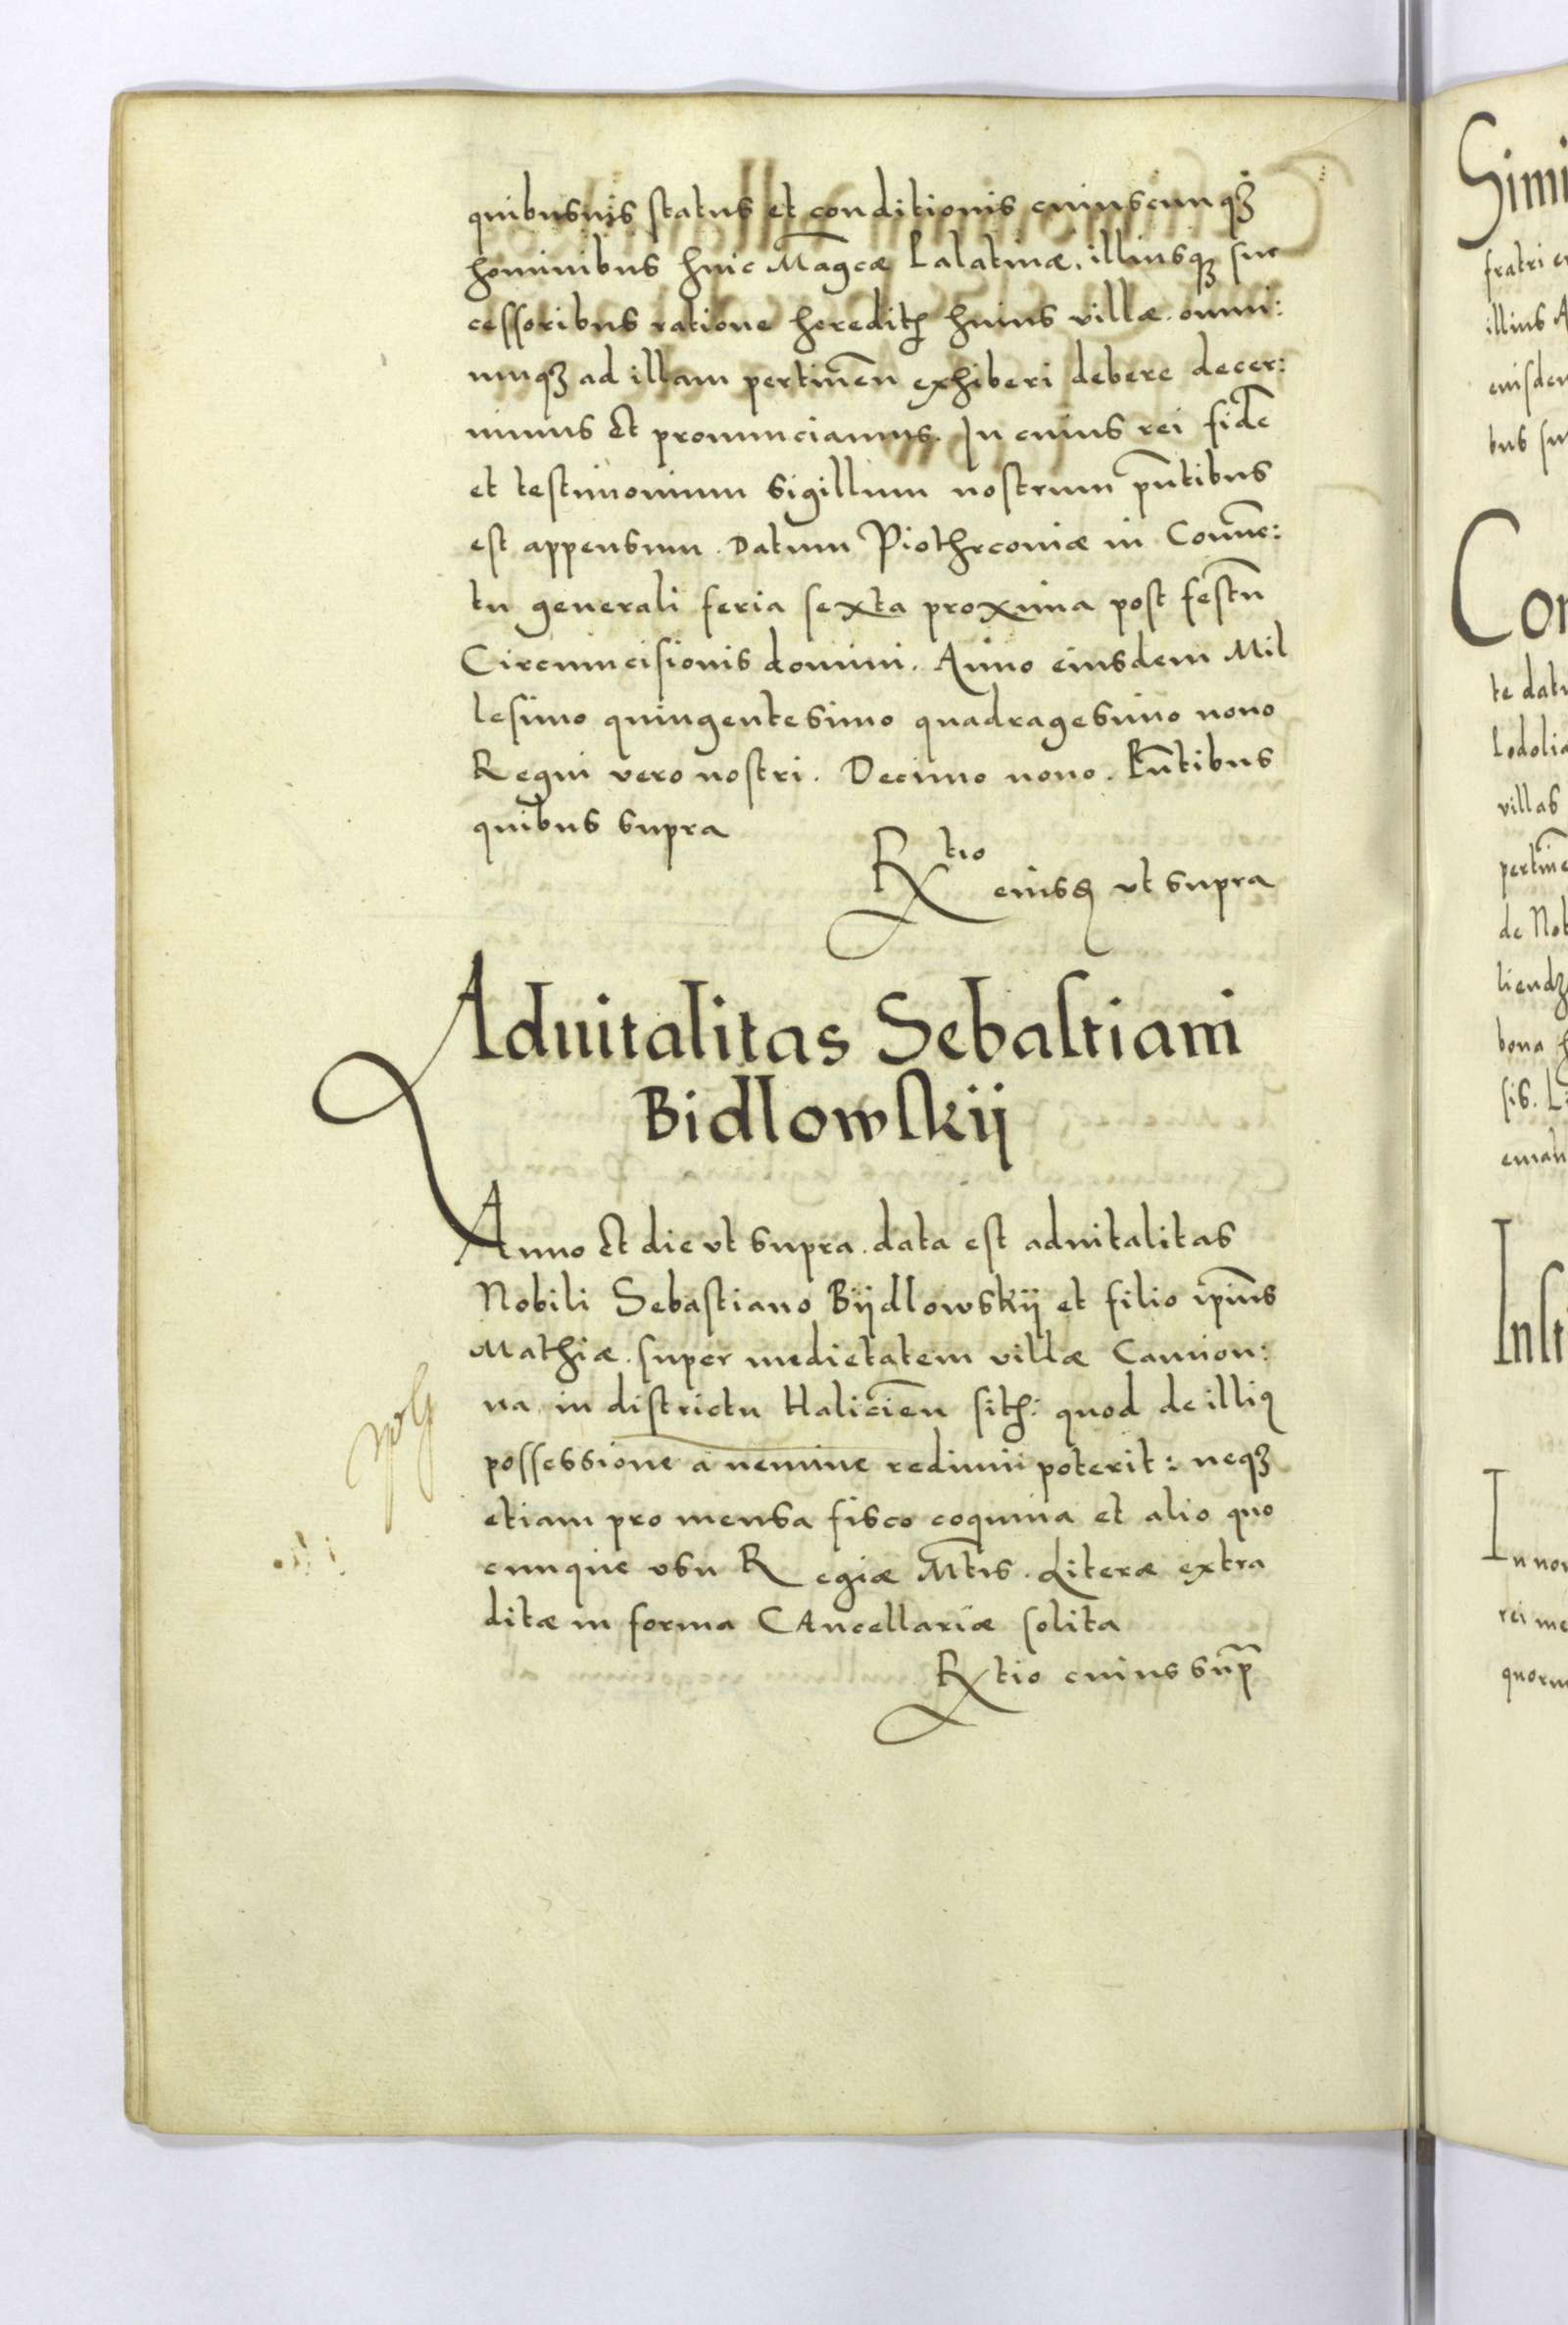 quibusuis status et conditionis cuiuscunqꝫ
hominibus huic Mag̅cæ Lalatinæ. illiusqꝫ suc
cessoribus ratione heredith huius villæ. omni:
umqꝫ ad illam pertinen̅ exhiberi debere decer:
nimus Et pronunciamus. In cuius rei fide̅
et testimonium sigillum nostrum pn̅tibus
est appensum. Datum Piothrcouiæ in Conue̅:
tu generali feria sexta proxima post festu̅
Circumcisionis domini. Anno eiusdem Mil
lesimo quingentesimo quadragesimo nono
Regni vero nostri. Decimo nono. Pn̅tibus
quibus supra
Rtio eiusd ut supra
Aduitalitas Sebastiani
Bidlowskij
Anno Et die ut supra. data est aduitalitas
Nobili Sebastiano Bijdlowskij et filio ip̅ius
Mathiæ. super medietatem villæ Camion:
na in districtu Halicien̅ sith: quod de illiꝯ
possessione a nemine redimi poterit: neqꝫ
etiam pro mensa fisco coquina et alio quo
cunque usu Regiæ Mt̅is. Literæ extra
ditæ in forma CAncellariæ solita
Rtio cuius sup̅
Simi
fratri
illius A
eiusdem
bus su
Con
te datu
Lodolia
villas
pertine̅
de Nob
liendꝫ
bona
sis.
eman
Inst
In no
rei me
quorum